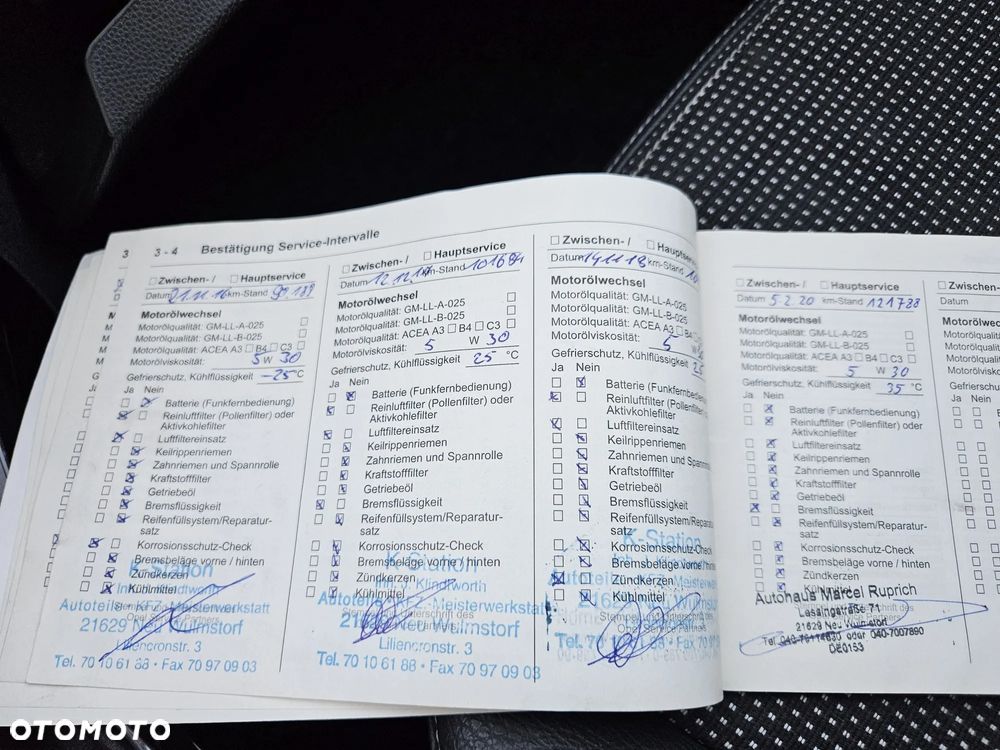 3
3 - 4 Bestätigung Service-Intervalle
Zwischen- / Hauptservice
Datum 21.11.16 km-Stand 99.189
Motorölwechsel
Motorölqualität: GM-LL-A-025
Motorölqualität: GM-LL-B-025
Motorölqualität: ACEA A3 B4 C3
Motorölviskosität: 5 W 30
Gefrierschutz, Kühlflüssigkeit -25 °C
Ja Nein
Batterie (Funkfernbedienung)
Reinluftfilter (Pollenfilter) oder
Aktivkohlefilter
Luftfiltereinsatz
Keilrippenriemen
Zahnriemen und Spannrolle
Kraftstofffilter
Getriebeöl
Bremsflüssigkeit
Reifenfüllsystem/Reparatur-
satz
Korrosionsschutz-Check
Bremsbeläge vorne / hinten
Zündkerzen
Kühlmittel
K-Station
Inh. Klindtworth
Autoteile KFZ Meisterwerkstatt
21629 Neu Wulmstorf
Liliencronstr. 3
Tel. 70 10 61 88 · Fax 70 97 09 03
Zwischen- / Hauptservice
Datum 12.12.17 km-Stand 101694
Motorölwechsel
Motorölqualität: GM-LL-A-025
Motorölqualität: GM-LL-B-025
Motorölqualität: ACEA A3 B4 C3
Motorölviskosität: 5 W 30
Gefrierschutz, Kühlflüssigkeit 25 °C
Ja Nein
Batterie (Funkfernbedienung)
Reinluftfilter (Pollenfilter) oder
Aktivkohlefilter
Luftfiltereinsatz
Keilrippenriemen
Zahnriemen und Spannrolle
Kraftstofffilter
Getriebeöl
Bremsflüssigkeit
Reifenfüllsystem/Reparatur-
satz
Korrosionsschutz-Check
Bremsbeläge vorne / hinten
Zündkerzen
Kühlmittel
K-Station
Inh. Klindtworth
Autoteile KFZ Meisterwerkstatt
Neu Wulmstorf
Liliencronstr. 3
Tel. 70 10 61 88 · Fax 70 97 09 03
Zwischen- / Hauptservice
Datum 14.11.18 km-Stand
Motorölwechsel
Motorölqualität: GM-LL-A-025
Motorölqualität: GM-LL-B-025
Motorölqualität: ACEA A3
Motorölviskosität: 5 W
Gefrierschutz, Kühlflüssigkeit
Ja Nein
Batterie (Funkfernbedienung)
Reinluftfilter (Pollenfilter)
Aktivkohlefilter
Luftfiltereinsatz
Keilrippenriemen
Zahnriemen und
Kraftstofffilter
Getriebeöl
Bremsflüssigkeit
Reifenfüllsystem/Repara
satz
Korrosionsschutz-Check
Bremsbeläge vorne / hinten
Zündkerzen
Kühlmittel
K-Station
Zwischen- / Hauptservice
Datum 5.2.20 km-Stand 121788
Motorölwechsel
Motorölqualität: GM-LL-A-025
Motorölqualität: GM-LL-B-025
Motorölqualität: ACEA A3 B4 C3
Motorölviskosität: 5 W 30
Gefrierschutz, Kühlflüssigkeit 35 °C
Ja Nein
Batterie (Funkfernbedienung)
Reinluftfilter (Pollenfilter) oder
Aktivkohlefilter
Luftfiltereinsatz
Keilrippenriemen
Zahnriemen und Spannrolle
Kraftstofffilter
Getriebeöl
Bremsflüssigkeit
Reifenfüllsystem/Reparatur-
satz
Korrosionsschutz-Check
Bremsbeläge vorne / hinten
Zündkerzen
Autohaus Marcel Ruprich
Lessingstraße 71
21629 Neu Wulmstorf
Tel. 040-70114630 oder 040-7007890
DE0153
Zwischen-
Datum
Motorölwechsel
Ja Nein
OTOMOTO